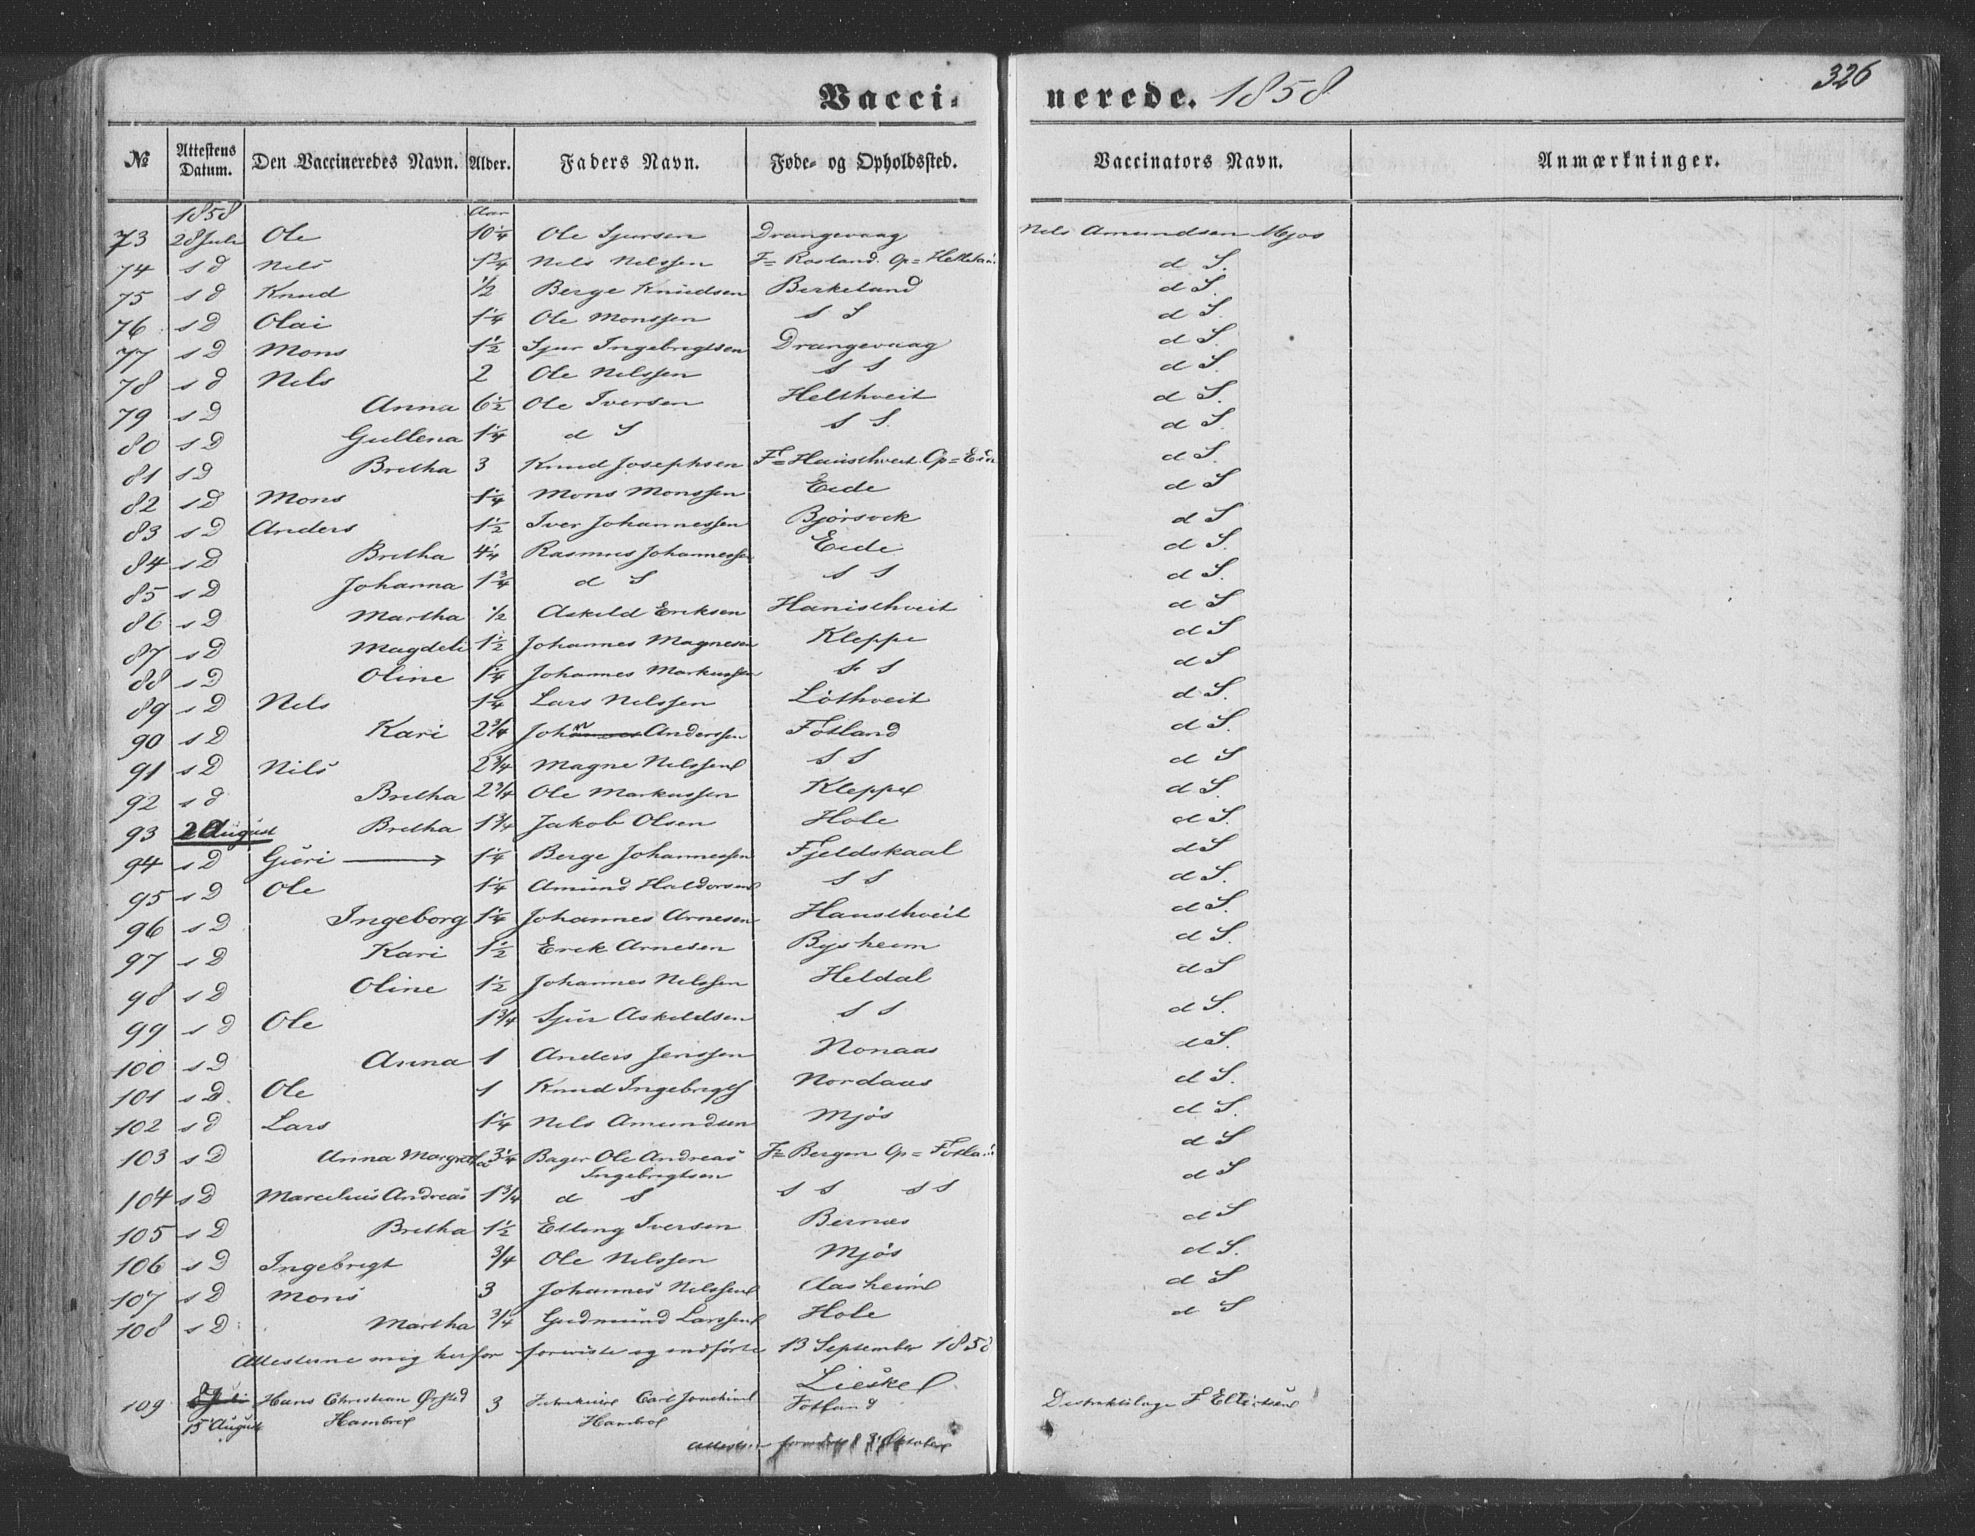 Vacci- nerede. 1858 326
№ Attestens Datum. Den Vaccineredes Navn. Alder. Faders Navn. Føde- og Opholdssted. Vaccinators Navn. Anmærkninger.
1858 Aar
73 28 Juli Ole 10 1/4 Ole Sjursen Drangevaag Nels Amundsen Mjos
74 s d Nels 1 3/4 Nels Nelssen F= Rosland. Op= d S.
75 s d Knud 1/2 Berge Knudsen Berkeland d S.
76 s D Olai 1 1/4 Ole Monssen s S d S.
77 s D Mons 1 1/2 Sjur Ingebregtsen Drangevaag d S.
78 s d Nels 2 Ole Nelssen s S d S.
79 s D Anna 6 1/2 Ole Iversen Helthveit d S.
80 s D Gullena 1 1/4 d S s S. d S.
81 s D Bretha 3 Knud Josephsen F= Op= d S.
82 s D Mons 1 1/4 Mons Monssen Eide d S
83 s D Anders 1 1/2 Iver Johannessen Bjørsvek d S
84 s D Bretha 4 1/4 Rasmus Johannessen Eide d S.
85 s D Johanna 1 3/4 d S s S d S.
86 s D Martha 1/2 Askeld Eriksen d S
87 s D Magdeli 1 1/2 Johannes Magnesen Kleppe d S
88 s D Oline 1 1/4 Johannes Markussen s S d S
89 s D Nels 1 1/4 Lars Nelssen Løthveit d S.
90 s D Kari 2 3/4 Johan Anderssen Fotland d S.
91 s D Nils 2 3/4 Magne Nelssen s S d S
92 s d Bretha 2 3/4 Ole Markussen Kleppe d S.
93 2 August Bretha 1 3/4 Jakob Olsen Hole d S.
94 s D Guri 1 1/4 Berge Johannessen Fjeldskaal d S
95 s D Ole 1 1/4 Amund Haldorsen s S d S.
96 s D Ingeborg 1 1/4 Johannes Arnesen Hausthveit d S.
97 s D Kari 1 1/2 Erek Arnesen Bysheim d S.
98 s D Oline 1 1/2 Johannes Nelssen Heldal d S
99 s D Ole 1 3/4 Sjur Askeldsen s S d S.
100 s D Anna 1 Anders Jenssen Nonaas d S.
101 s D. Ole 1 Knud Ingebregts Nordaas d S.
102 s d Lars 1 1/4 Nels Amundsen Mjøs d S.
103 s D Anna Margretha 3 1/4 Bager Ole Andreas F= Bergen Op= d S
Ingebregtsen
104 s D Marcelius Andreas 1 3/4 d S s S s S d S
105 s D Bretha 1 1/2 Elling Iversen Bernæs d S
106 s D Ingebregt 3/4 Ole Nelssen Mjøs d S.
107 s D Mons 3 Johannes Nelssen Aasheim d S
108 s D Martha 3/4 Gudmund Larssen Hole d S
Attesterne mig herfor foreviste og indførte 13 September 1858
109 15 August Hans Christian Ørsted 3 Carl Joachim Fotland Destriktslæge F Ellertsen
Hambro Hambro
Oktober